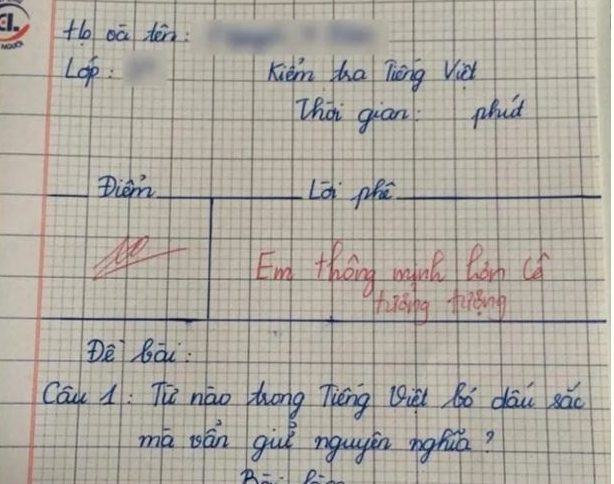 CL.
NGƯỜI
Họ và tên:
Lớp:
Kiểm tra Tiếng Việt
Thời gian: phút
Điểm
Lời phê
10
Em thông minh hơn cô
tưởng tượng
Đề bài:
Câu 1: Từ nào trong Tiếng Việt bỏ dấu sắc
mà vẫn giữ nguyên nghĩa?
Bài làm